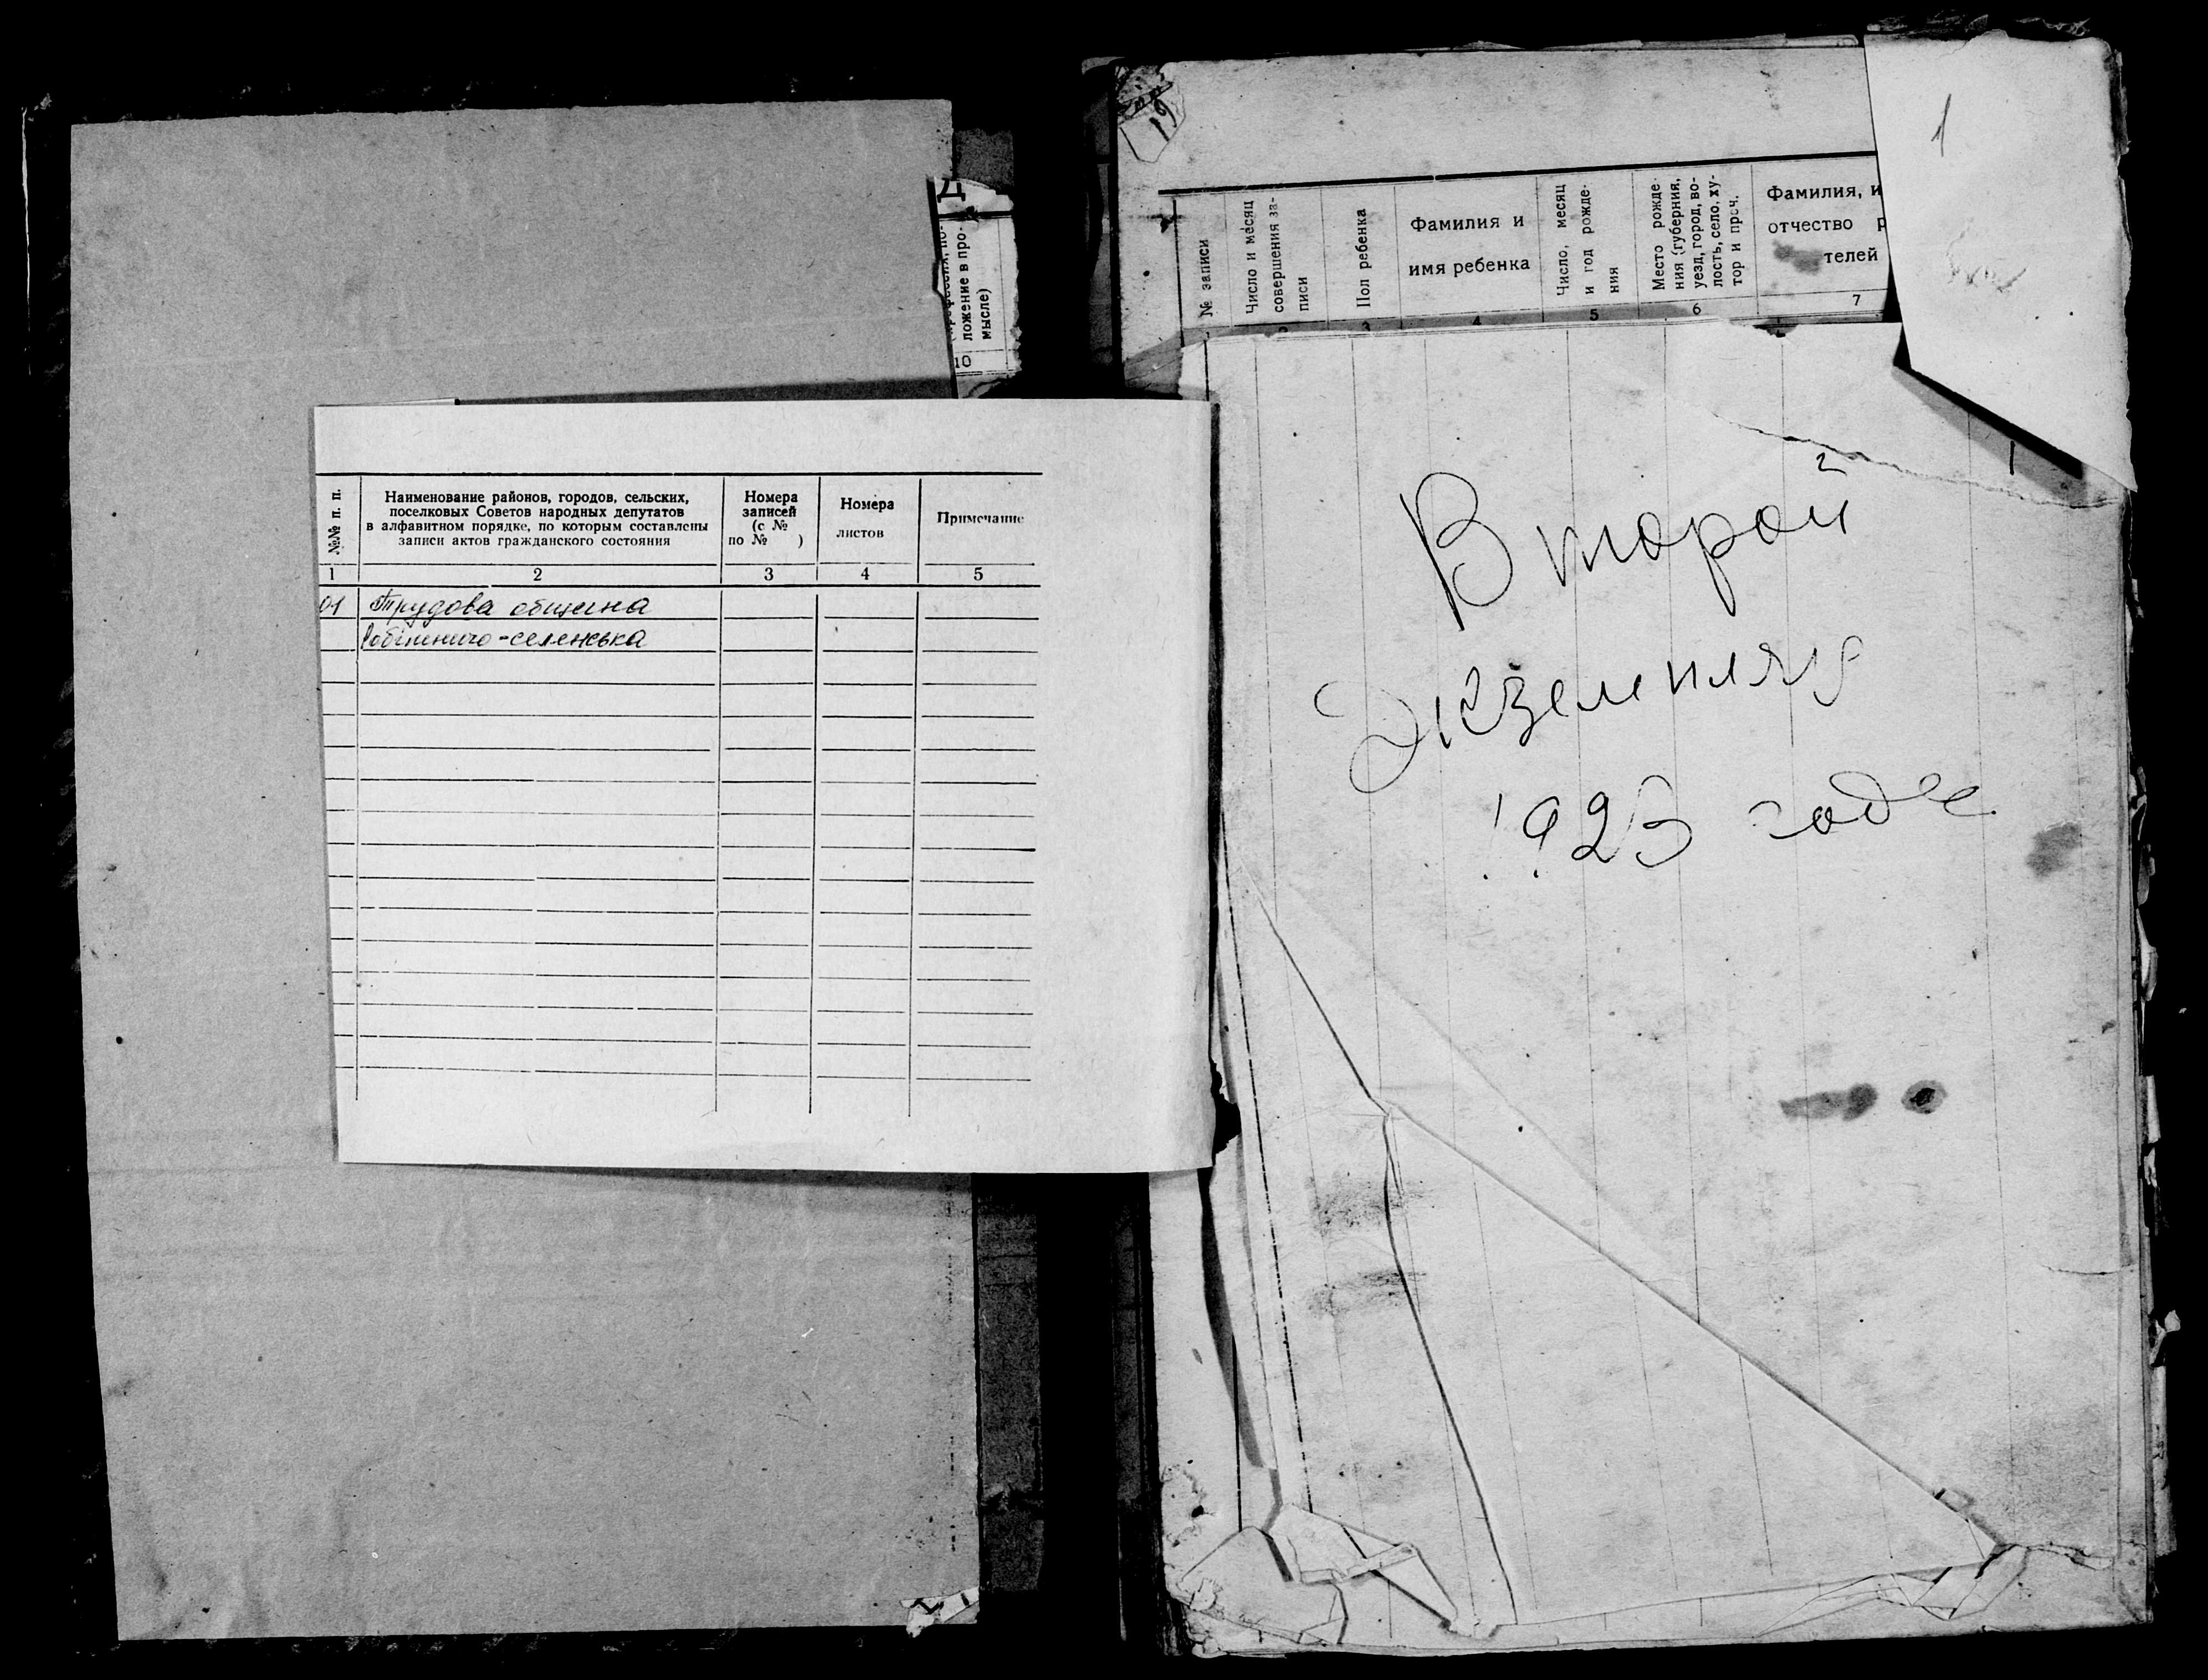 Д
ложение в про-
мысле)
10
№№ п. п.
Наименование районов, городов, сельских,
поселковых Советов народных депутатов
в алфавитном порядке, по которым составлены
записи актов гражданского состояния
Номера
записей
(с №
по № )
Номера
листов
Примечание
1 2 3 4 5
01 Трудова община
робітничо-селенська
19
1
№ записи
Число и месяц
совершения за-
писи
Пол ребенка
Фамилия и
имя ребенка
Число, месяц
и год рожде-
ния
Место рожде-
ния (губерния,
уезд, город, во-
лость, село, ху-
тор и проч.
Фамилия, и
отчество р
телей
2 3 4 5 6 7
2
1
Второй
Экземпляр
1923 года